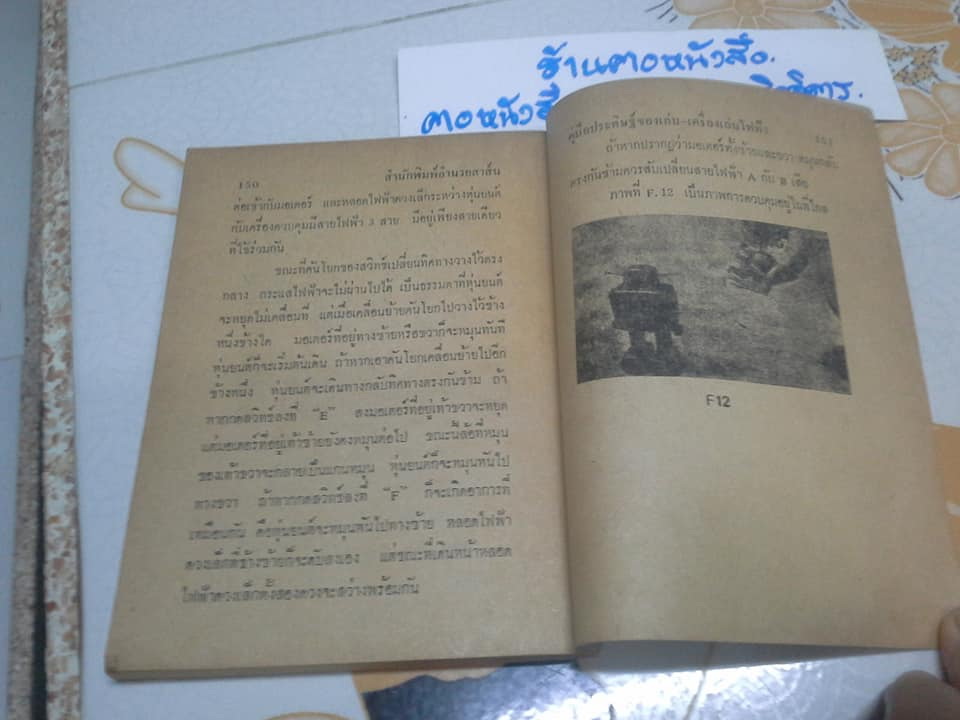 ร้านคอหนังสือ.
คอหนังสือ
150 สำนักพิมพ์อำนวยสาส์น
ต่อเข้ากับมอเตอร์ และหลอดไฟฟ้าดวงเล็กระหว่างหุ่นยนต์
กับเครื่องควบคุมมีสายไฟฟ้า 3 สาย มีอยู่เพียงสายเดียว
ที่ใช้ร่วมกัน
ขณะที่คันโยกของสวิทช์เปลี่ยนทิศทางวางไว้ตรง
กลาง กระแสไฟฟ้าจะไม่ผ่านไปได้ เป็นธรรมดาที่หุ่นยนต์
จะหยุดไม่เคลื่อนที่ แต่เมื่อเคลื่อนย้ายคันโยกไปวางไว้ข้าง
หนึ่งข้างใด มอเตอร์ที่อยู่ทางซ้ายหรือขวาก็จะหมุนทันที
หุ่นยนต์ก็จะเริ่มต้นเดิน ถ้าหากเอาคันโยกเคลื่อนย้ายไปอีก
ข้างหนึ่ง หุ่นยนต์จะเดินทางกลับทิศทางตรงกันข้าม ถ้า
หากกดสวิทช์ลงที่ "E" ลงมอเตอร์ที่อยู่เท้าขวาจะหยุด
แต่มอเตอร์ที่อยู่เท้าซ้ายยังคงหมุนต่อไป ขณะนี้ล้อที่หมุน
ของเท้าขวาจะกลายเป็นแกนหมุน หุ่นยนต์ก็จะหมุนหันไป
ทางขวา ถ้าหากกดสวิทช์ลงที่ "F" ก็จะเกิดอาการที่
เหมือนกัน คือหุ่นยนต์จะหมุนหันไปทางซ้าย หลอดไฟฟ้า
ดวงเล็กที่ข้างซ้ายก็จะดับลงเอง แต่ขณะที่เดินหน้าหลอด
ไฟฟ้าดวงเล็กทั้งสองดวงจะสว่างพร้อมกัน
คู่มือประดิษฐ์ของเล่น-เครื่องเล่นไฟฟ้า 151
ถ้าหากปรากฏว่ามอเตอร์ทั้งซ้ายและขวา หมุนกลับ
ตรงกันข้ามควรสับเปลี่ยนสายไฟฟ้า A กับ B เสีย
ภาพที่ F.12 เป็นภาพการควบคุมอยู่ในที่ไกล
F12